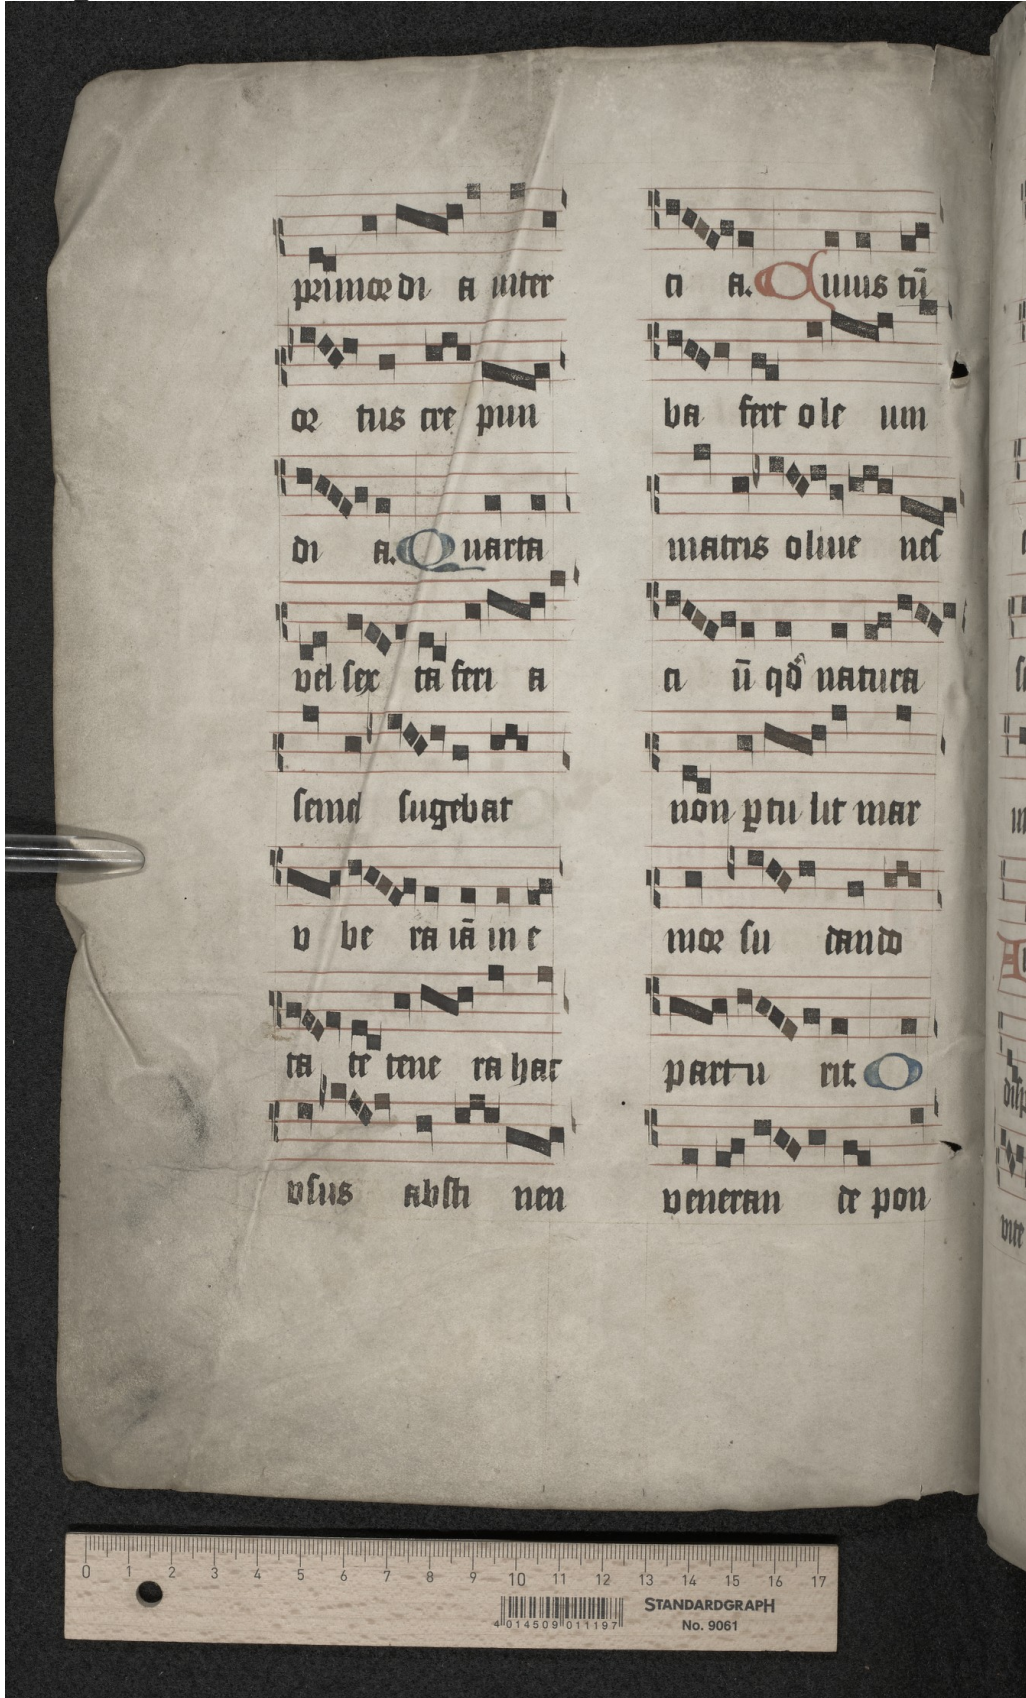 primordi a inter
or tus cre pun
di a. Quarta
vel sex ta feri a
semel sugebat
v be ra iā in e
ta te tene ra hac
vsus absti nen
ci a. Cuius tū
ba fert ole um
matris oliue nes
ci ū qd natura
non ptu lit mar
mor su dando
partu rit. O
veneran de pon
0 1 2 3 4 5 6 7 8 9 10 11 12 13 14 15 16 17
4 014509 011197
STANDARDGRAPH
No. 9061